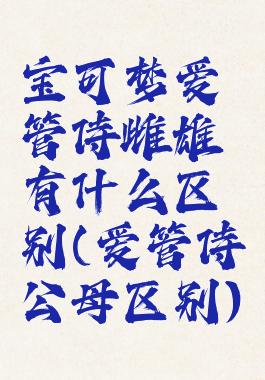 宝可梦爱
管侍雌雄
有什么区
别(爱管侍
公母区别)